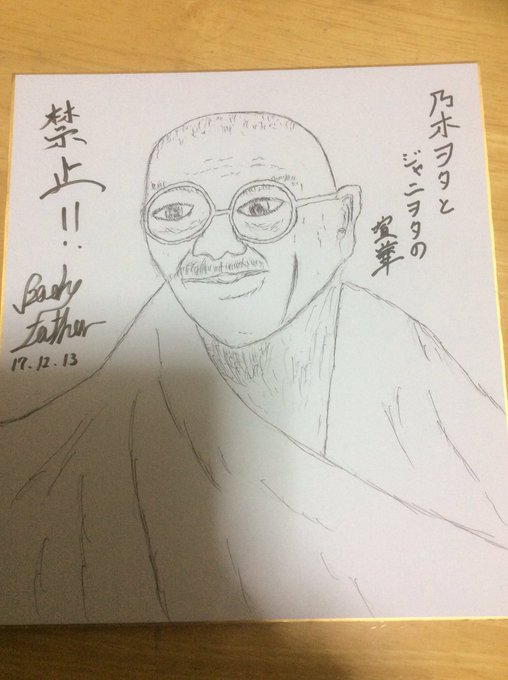 乃木ヲタと
ジャニヲタの
宣華
禁止!!
Father
17.12.13